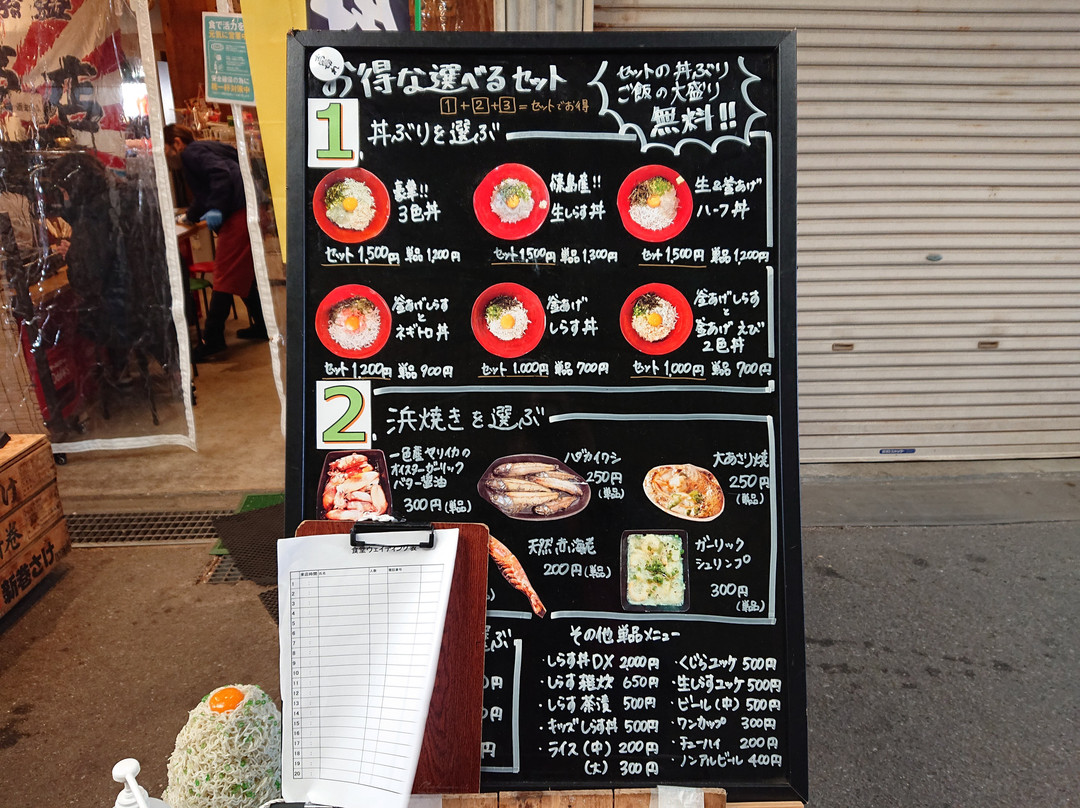 お得な選べるセット
1+2+3=セットでお得
セットの丼ぶり
ご飯の大盛り
無料!!
1.
丼ぶりを選ぶ
豪華!!
3色丼
セット1,500円 単品1,200円
篠島産!!
生しらす丼
セット1,500円 単品1,300円
生&釜あげ
ハーフ丼
セット1,500円 単品1,200円
釜あげしらす
と
ネギトロ丼
セット1,200円 単品900円
釜あげ
しらす丼
セット1,000円 単品700円
釜あげしらす
と
釜あげえび
2色丼
セット1,000円 単品700円
2.
浜焼きを選ぶ
一色産ヤリイカの
オイスターガーリック
バター醤油
300円(単品)
ハダカイワシ
250円
(単品)
大あさり焼
250円
(単品)
天然赤海老
200円(単品)
ガーリック
シュリンプ
300円
(単品)
ぶ
円
円
円
その他単品メニュー
・しらす丼DX 2,000円
・しらす雑炊 650円
・しらす茶漬 500円
・キッズしらす丼 500円
・ライス(中) 200円
(大) 300円
・くじらユッケ 500円
・生しらすユッケ 500円
・ビール(中) 500円
・ワンカップ 300円
・チューハイ 200円
・ノンアルビール 400円
食堂ウェイティング表
来店時間
氏名
人数
電話番号
1
2
3
4
5
6
7
8
9
10
11
12
13
14
15
16
17
18
19
20
食で活力を
元気に営業中
新巻さけ